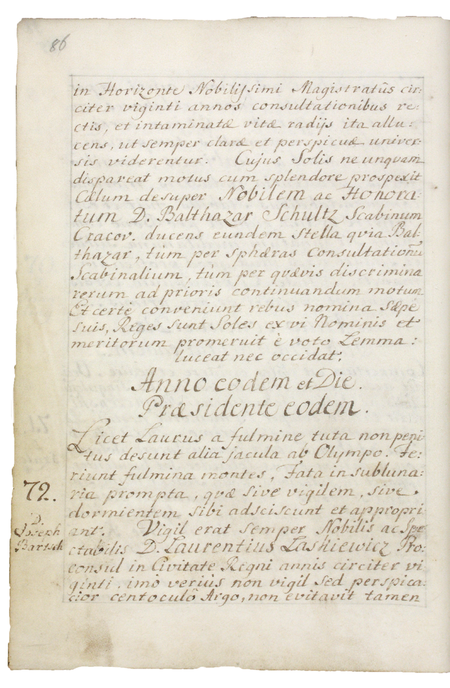 86
in Horizonte Nobilissimi Magistratûs cir-
citer viginti annos consultationibus re-
ctis, et intaminatæ vitæ radijs ita allu-
cens, ut semper claræ et perspicuæ univer-
sis viderentur. Cujus Solis ne unquam
dispareat motus cum splendore prospexit
Cœlum desuper Nobilem ac Honora-
tum D. Balthazar Schultz Scabinum
Cracov. ducens eundem Stella qvia Bal-
thazar, tùm per sphæras Consultationũ
Scabinalium, tùm per quævis discrimina
rerum ad prioris continuandum motum
Et certè conveniunt rebus nomina Sæpè
suis, Reges sunt Soles ex vi Nominis et
meritorum promeruit è voto Lemma:
luceat nec occidat.
Anno eodem et Die.
Præsidente eodem.
Licet Laurus a fulmine tuta non peni-
tus desunt alia jacula ab Olympo. Fe-
riunt fulmina montes, Fata in subluna-
72.
ria prompta, quæ sive vigilem, sive
dormientem sibi adsciscunt et appropri-
D.
Joseph
Bartsch
ant. Vigil erat semper Nobilis ac Spe-
ctabilis D. Laurentius Laskiewicz Pro-
consul in Civitate Regni annis circiter vi-
ginti. imò veriùs non vigil sed perspica-
cior centoculô Argo, non evitavit tamen